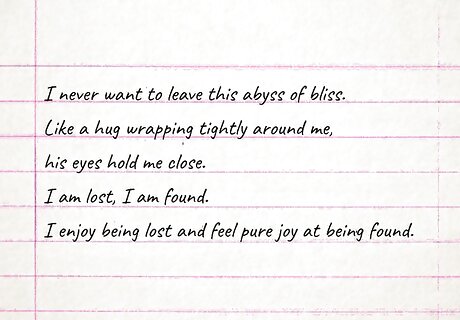 I never want to leave this abyss of bliss.
Like a hug wrapping tightly around me,
his eyes hold me close.
I am lost, I am found.
I enjoy being lost and feel pure joy at being found.